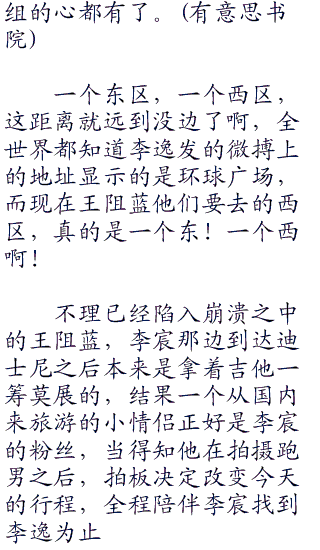 组的心都有了。(有意思书
院)
一个东区，一个西区，
这距离就远到没边了啊，全
世界都知道李逸发的微搏上
的地址显示的是环球广场，
而现在王阻蓝他们要去的西
区，真的是一个东！一个西
啊！
不理已经陷入崩溃之中
的王阻蓝，李宸那边到达迪
士尼之后本来是拿着吉他一
筹莫展的，结果一个从国内
来旅游的小情侣正好是李宸
的粉丝，当得知他在拍摄跑
男之后，拍板决定改变今天
的行程，全程陪伴李宸找到
李逸为止